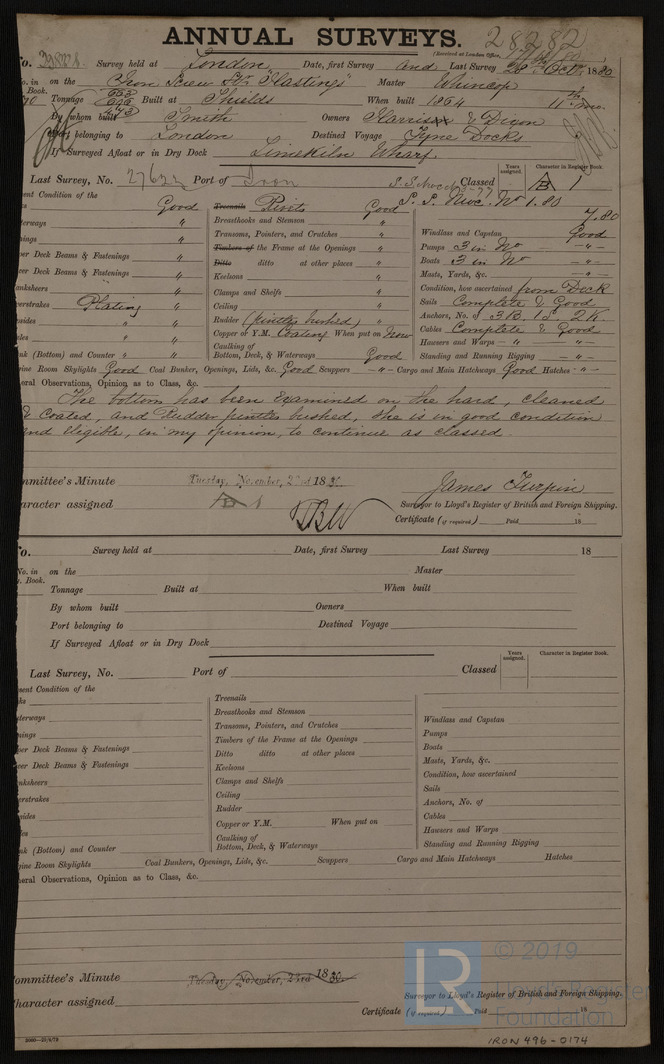 ANNUAL SURVEYS. 28282
(Received at London Office,
Survey held at London Date, first Survey and Last Survey 26 Octr. 1880
No. in on the Iron Screw Str "Hastings" Master Whincop
Book. Tonnage 653 Built at Shields When built 1864 11th mo.
By whom built Smith Owners Harrison & Dixon
Port belonging to London Destined Voyage Tyne Docks
If Surveyed Afloat or in Dry Dock Limekiln Wharf.
Years assigned. Character in Register Book.
Last Survey, No. 27622 Port of Iron Classed B 1
S.S. Nwc. No 1.80
7,80
ent Condition of the
Good Treenails Rivits Good
terways " Breasthooks and Stemson " Windlass and Capstan Good
nings " Transoms, Pointers, and Crutches " Pumps 3 in No - " -
er Deck Beams & Fastenings " Timbers of the Frame at the Openings " Boats 3 in No - " -
er Deck Beams & Fastenings " Ditto ditto at other places " Masts, Yards, &c. - " -
anksheers " Keelsons " Condition, how ascertained from Dock
erstrakes Plating " Clamps and Shelfs " Sails Complete & Good
Ceiling " Anchors, No. of 3 B. 1 S. 2 K.
sides " Rudder (pintles bushed) " Cables Complete & Good
les " Copper or Y.M. Coating When put on Now Hawsers and Warps " - " -
nk (Bottom) and Counter " " Caulking of Bottom, Deck, & Waterways Good Standing and Running Rigging - " -
ine Room Skylights Good Coal Bunker, Openings, Lids, &c. Good Scuppers - " - Cargo and Main Hatchways Good Hatches - " -
eral Observations, Opinion as to Class, &c.
The bottom has been examined on the hard, cleaned
& Coated, and Rudder pintles bushed, She is in good condition
and eligible, in my opinion, to continue as classed.
mmittee's Minute Tuesday, November, 23rd 1880. James Turpin
aracter assigned B 1 Surveyor to Lloyd's Register of British and Foreign Shipping.
Certificate (if required) Paid 18
o. Survey held at Date, first Survey Last Survey 18
No. in on the Master
. Book. Tonnage Built at When built
By whom built Owners
Port belonging to Destined Voyage
If Surveyed Afloat or in Dry Dock
Years assigned. Character in Register Book.
Last Survey, No. Port of Classed
ent Condition of the
ks Treenails
Breasthooks and Stemson
terways Transoms, Pointers, and Crutches Windlass and Capstan
nings Timbers of the Frame at the Openings Pumps
er Deck Beams & Fastenings Ditto ditto at other places Boats
er Deck Beams & Fastenings Keelsons Masts, Yards, &c.
nksheers Clamps and Shelfs Condition, how ascertained
erstrakes Ceiling Sails
sides Rudder Anchors, No. of
les Copper or Y.M. When put on Cables
Caulking of Hawsers and Warps
nk (Bottom) and Counter Bottom, Deck, & Waterways Standing and Running Rigging
gine Room Skylights Coal Bunkers, Openings, Lids, &c. Scuppers Cargo and Main Hatchways Hatches
eral Observations, Opinion as to Class, &c.
ommittee's Minute Tuesday, November, 23rd 1880.
Character assigned Surveyor to Lloyd's Register of British and Foreign Shipping.
Certificate (if required) Paid 18
LR © 2019 Lloyd's Register Foundation
IRON 496-0174